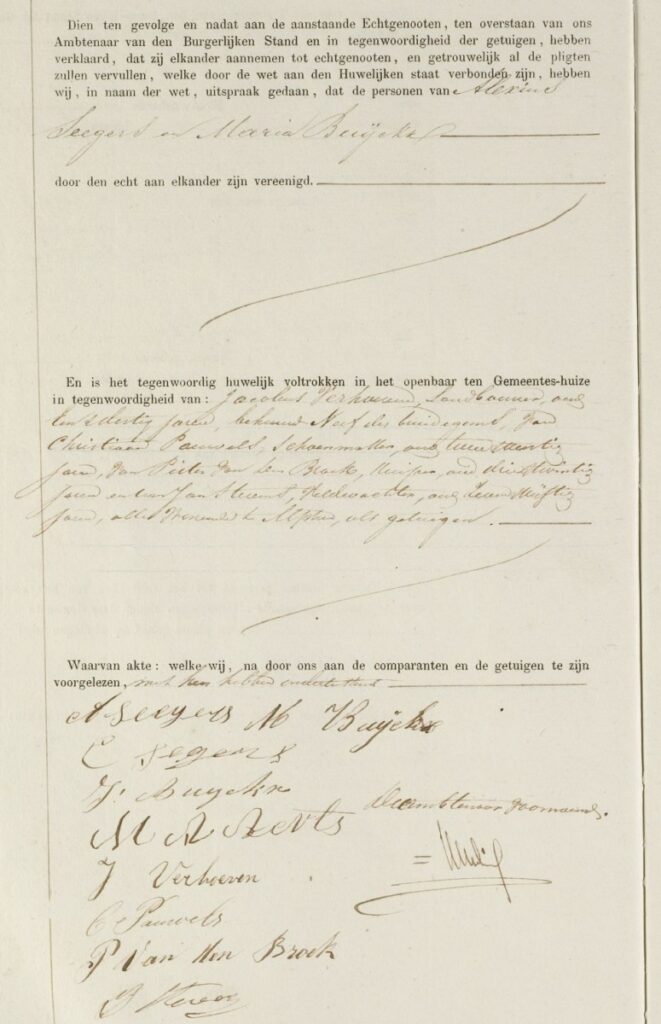 Dien ten gevolge en nadat aan de aanstaande Echtgenooten, ten overstaan van ons
Ambtenaar van den Burgerlijken Stand en in tegenwoordigheid der getuigen, hebben
verklaard, dat zij elkander aannemen tot echtgenooten, en getrouwelijk al de pligten
zullen vervullen, welke door de wet aan den Huwelijken staat verbonden zijn, hebben
wij, in naam der wet, uitspraak gedaan, dat de personen van Alexius
Seegers en Maria Buijckx
door den echt aan elkander zijn vereenigd.
En is het tegenwoordig huwelijk voltrokken in het openbaar ten Gemeentes-huize
in tegenwoordigheid van: Jacobus Verhoeven, Landbouwer, oud
een & dertig jaren, behuwd Neef des bruidegoms, van
Christiaan Pauwels, Schoenmaker, oud twee & veertig
jaren, van Pieter van den Broek, Kuiper, oud drie & twintig
jaren en van Jan Stevens, Veldwachter, oud zeven & vijftig
jaren, alle wonende te Alphen, als getuigen.
Waarvan akte: welke wij, na door ons aan de comparanten en de getuigen te zijn
voorgelezen, met hen hebben onderteekend
A Seegers M Buijckx
C Segers
J. Buyckx
M A Aerts
De ambtenaar voornoemd.
J Verhoeven
C Pauwels
P Van den Broek